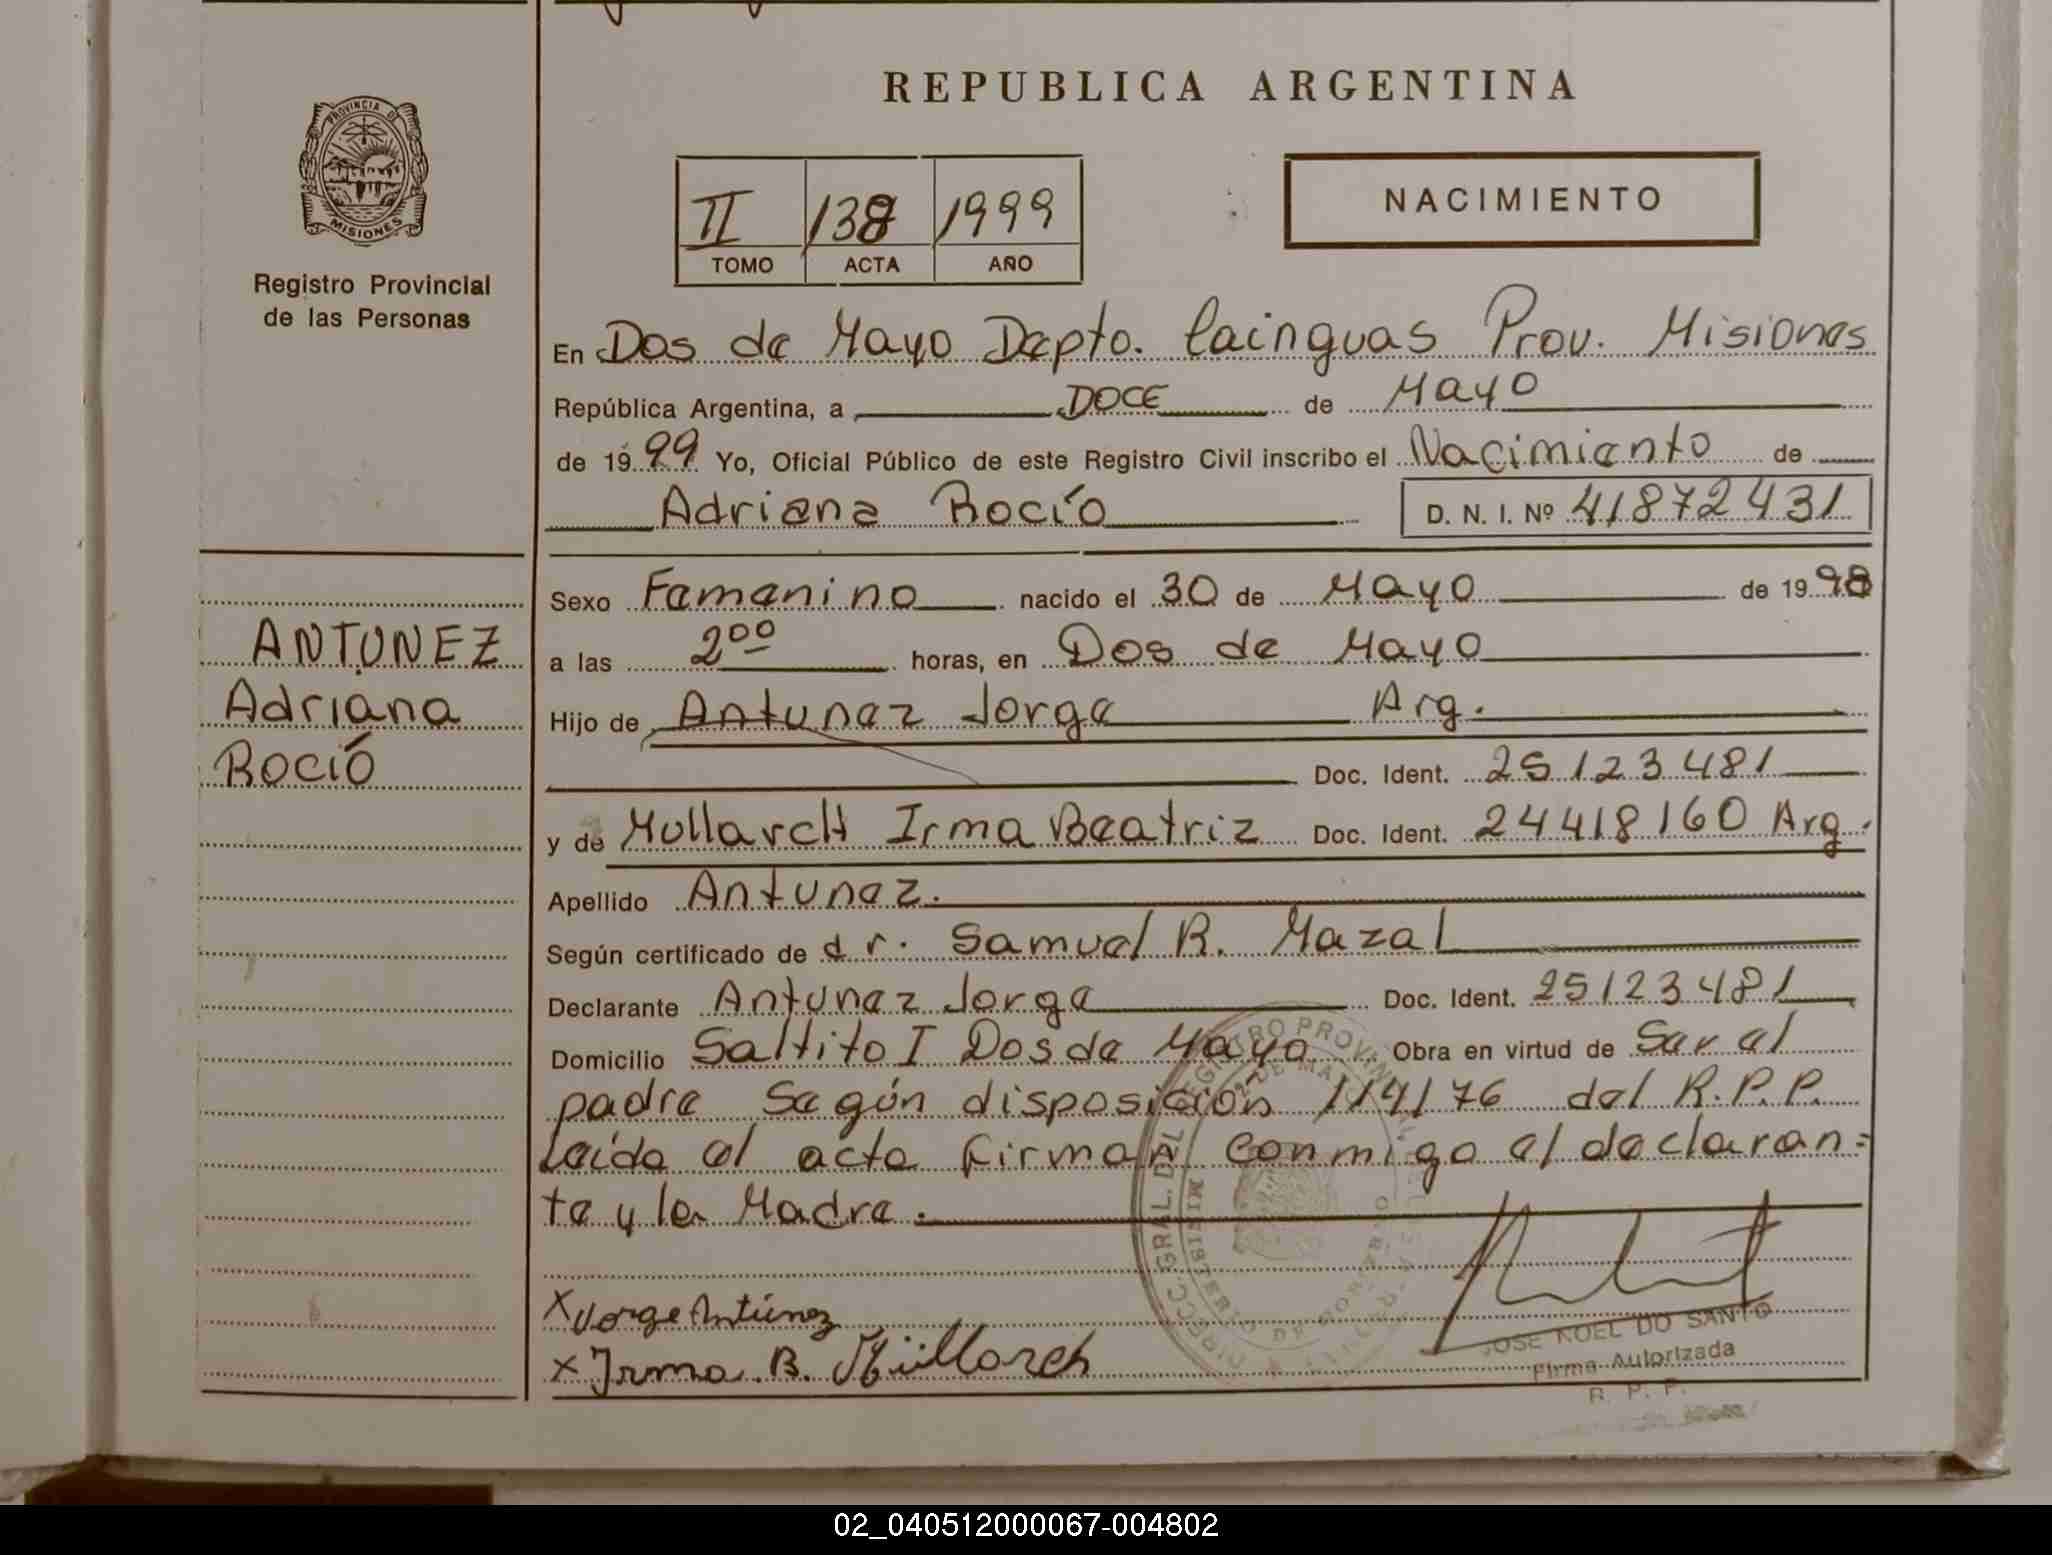 REPUBLICA ARGENTINA
PROVINCIA DE
MISIONES
Registro Provincial
de las Personas
II 138 1999
TOMO ACTA AÑO
NACIMIENTO
En Dos de Mayo Depto. Cainguas Prov. Misiones
República Argentina, a DOCE de Mayo
de 1999 Yo, Oficial Público de este Registro Civil inscribo el Nacimiento de
Adriana Rocío D. N. I. Nº 41872431
Sexo Femenino nacido el 30 de Mayo de 1998
a las 2⁰⁰ horas, en Dos de Mayo
Hijo de Antunez Jorge Arg.
Doc. Ident. 25123481
y de Mullarch Irma Beatriz Doc. Ident. 24418160 Arg.
Apellido Antunez.
Según certificado de dr. Samuel R. Mazal
Declarante Antunez Jorge Doc. Ident. 25123481
Domicilio Saltito I Dos de Mayo Obra en virtud de Ser el
padre Según disposición 114/76 del R.P.P.
Leída el acta firman conmigo el declaran=
te y la Madre.
ANTUNEZ
Adriana
Roció
X Jorge Antúnez
X Irma B. Müllarch
JOSE NOEL DO SANTO
Firma Autorizada
R. P. P.
02_040512000067-004802